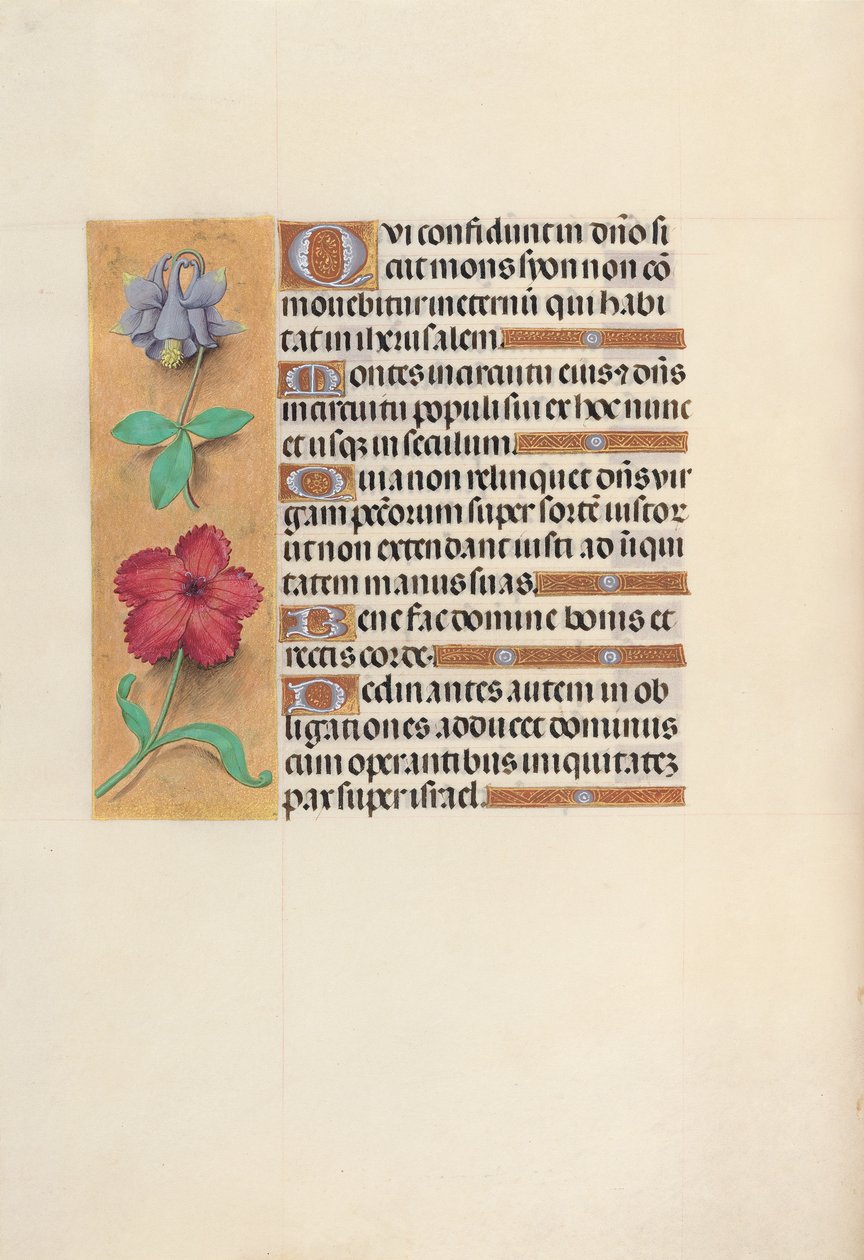 Qui confidunt in dn̄o si
cut mons syon non cō
mouebitur in eternū qui habi
tat in iherusalem.
Montes in circuitu eius ⁊ dn̄s
in circuitu populi sui ex hoc nunc
et usqꝫ in seculum.
Quia non relinquet dn̄s vir
gam pcc̄orum super sortē iustoꝝ
ut non extendant iusti ad īiqui
tatem manus suas.
Bene fac domine bonis et
rectis corde.
Declinantes autem in ob
ligationes adducet dominus
cum operantibus iniquitateꝫ
pax super israel.